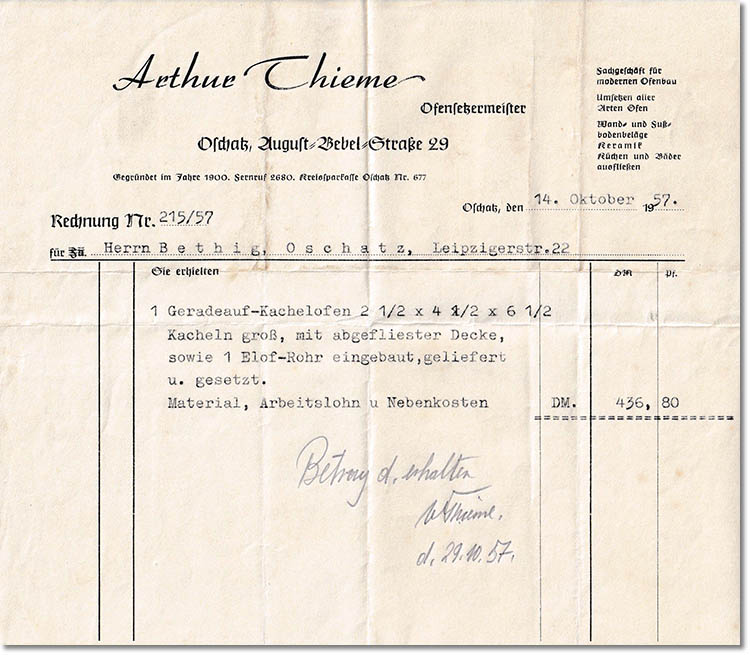 Arthur Thieme
Ofensetzermeister
Oschatz, August-Bebel-Straße 29
Gegründet im Jahre 1900. Fernruf 2680. Kreissparkasse Oschatz Nr. 677
Fachgeschäft für
modernen Ofenbau
Umsetzen aller
Arten Öfen
Wand- und Fuß-
bodenbeläge
Keramik
Küchen und Bäder
ausfließen
Oschatz, den 14. Oktober 1957.
Rechnung Nr. 215/57
für Fa. Herrn Bethig, Oschatz, Leipzigerstr.22
Sie erhielten DM Pf.
1 Geradeauf-Kachelofen 2 1/2 x 4 1/2 x 6 1/2
Kacheln groß, mit abgefliester Decke,
sowie 1 Elof-Rohr eingebaut,geliefert
u. gesetzt.
Material, Arbeitslohn u Nebenkosten DM. 436, 80
Betrag d. erhalten
Thieme.
d. 29.10.57.